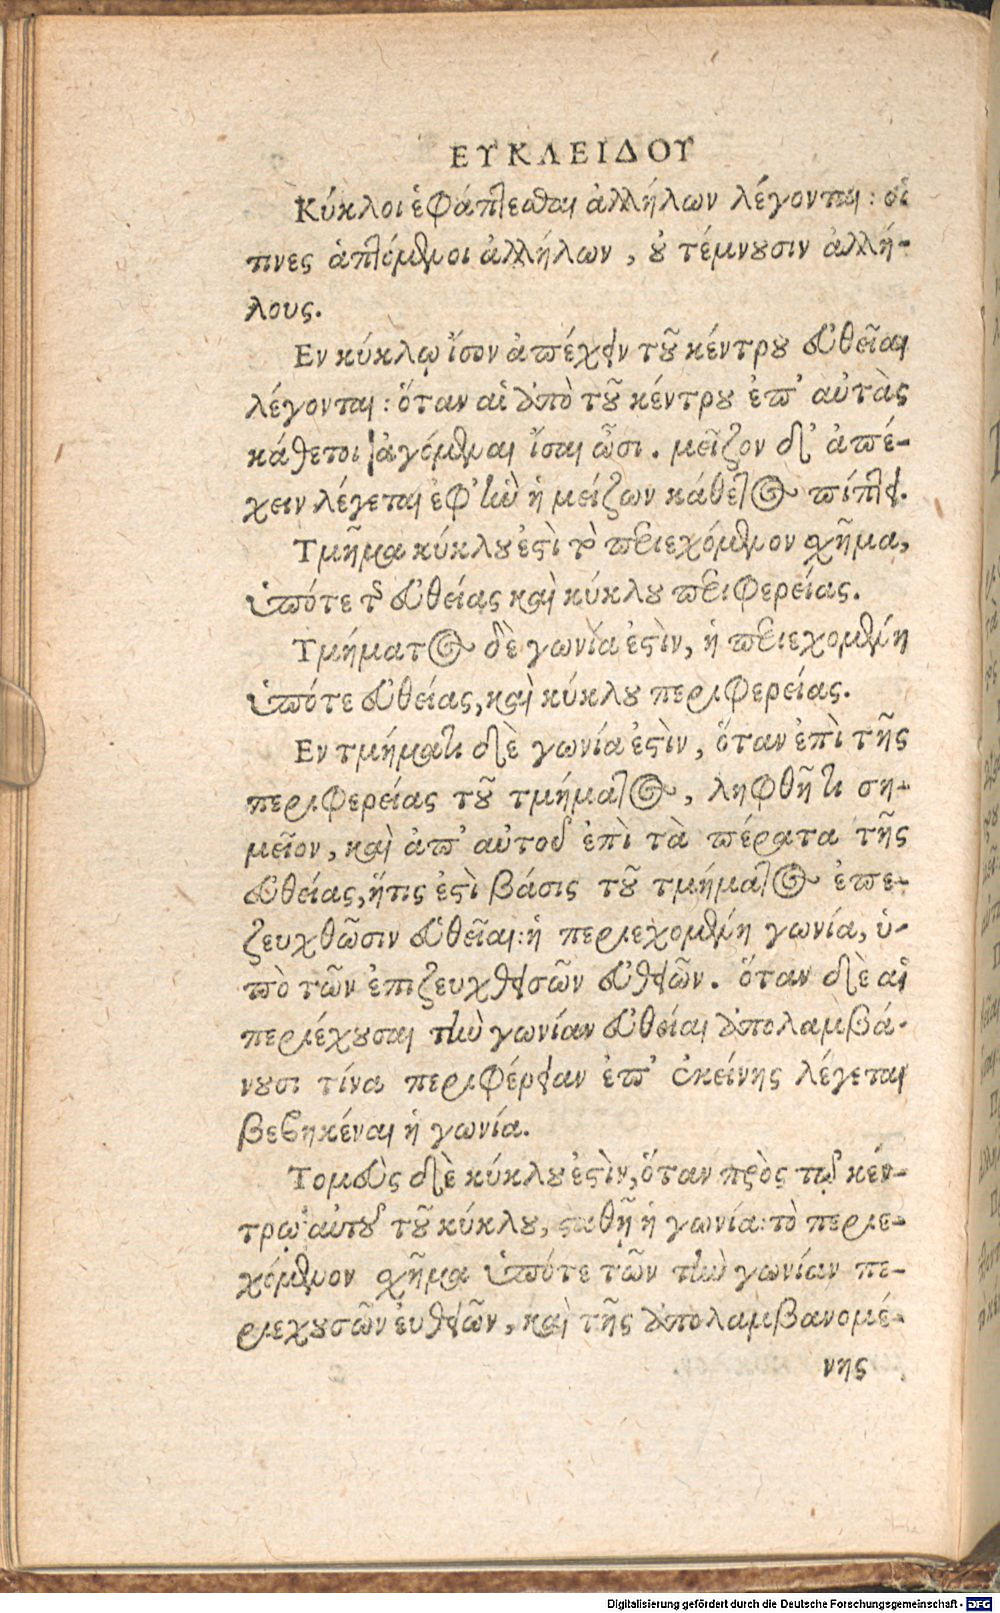 ΕΥΚΛΕΙΔΟΥ
Κύκλοι ἐφάπτεσθαι ἀλλήλων λέγονται: οἵ
τινες ἁπτόμενοι ἀλλήλων, οὐ τέμνουσιν ἀλλή-
λους.
Εν κύκλῳ ἴσον ἀπέχειν τοῦ κέντρου εὐθεῖαι
λέγονται: ὅταν αἱ ἀπὸ τοῦ κέντρου ἐπ' αὐτὰς
κάθετοι ἀγόμεναι ἴσαι ὦσι. μεῖζον δ' ἀπέ-
χειν λέγεται ἐφ' ἣν ἡ μείζων κάθετος πίπτει.
Τμῆμα κύκλου ἐστὶ τὸ περιεχόμενον σχῆμα,
ὑπότε τῆς εὐθείας καὶ κύκλου περιφερείας.
Τμήματος δὲ γωνία ἐστὶν, ἡ περιεχομένη
ὑπότε εὐθείας, καὶ κύκλου περιφερείας.
Εν τμήματι δὲ γωνία ἐστὶν, ὅταν ἐπὶ τῆς
περιφερείας τοῦ τμήματος, ληφθῆ τι ση-
μεῖον, καὶ ἀπ' αὐτοῦ ἐπὶ τὰ πέρατα τῆς
εὐθείας, ἥτις ἐστὶ βάσις τοῦ τμήματος ἐπε-
ζευχθῶσιν εὐθεῖαι: ἡ περιεχομένη γωνία, ὑ-
πὸ τῶν ἐπιζευχθεισῶν εὐθειῶν. ὅταν δὲ αἱ
περιέχουσαι τὴν γωνίαν εὐθείαι ἀπολαμβά-
νουσι τίνα περιφέρειαν ἐπ' ἐκείνης λέγεται
βεβηκέναι ἡ γωνία.
Τομεὺς δὲ κύκλου ἐστὶν, ὅταν πρὸς τῷ κέν-
τρῳ αὐτοῦ τοῦ κύκλου, σταθῇ ἡ γωνία: τὸ περιε-
χόμενον σχῆμα ὑπότε τῶν τὴν γωνίαν πε-
ριεχουσῶν εὐθειῶν, καὶ τῆς ἀπολαμβανομέ-
νης
Digitalisierung gefördert durch die Deutsche Forschungsgemeinschaft - DFG